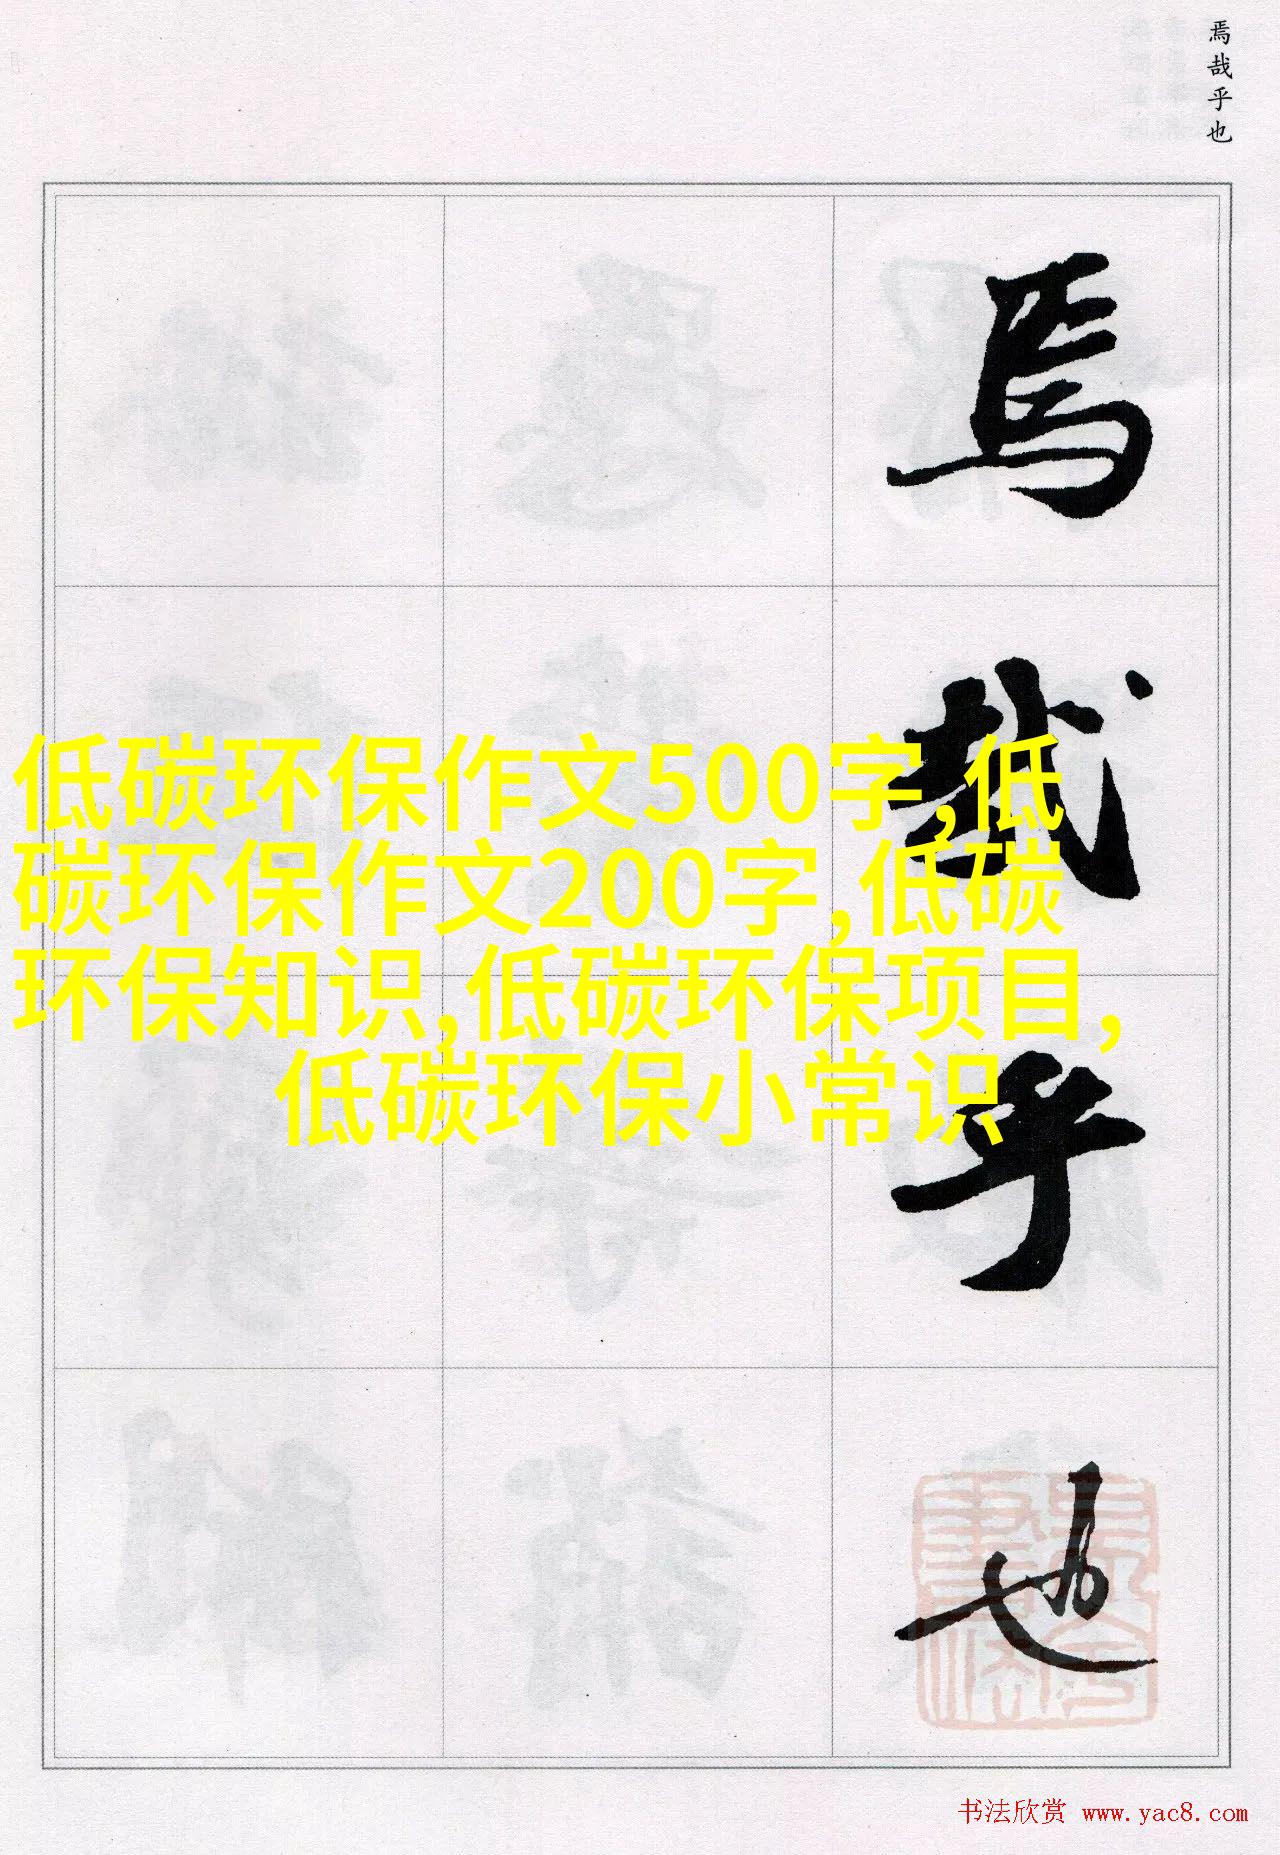 焉哉乎也
焉
哉
乎
也
低碳环保作文500字,低
碳环保作文200字,低碳
环保知识,低碳环保项目,
低碳环保小常识
书法欣赏 www.yac8.com